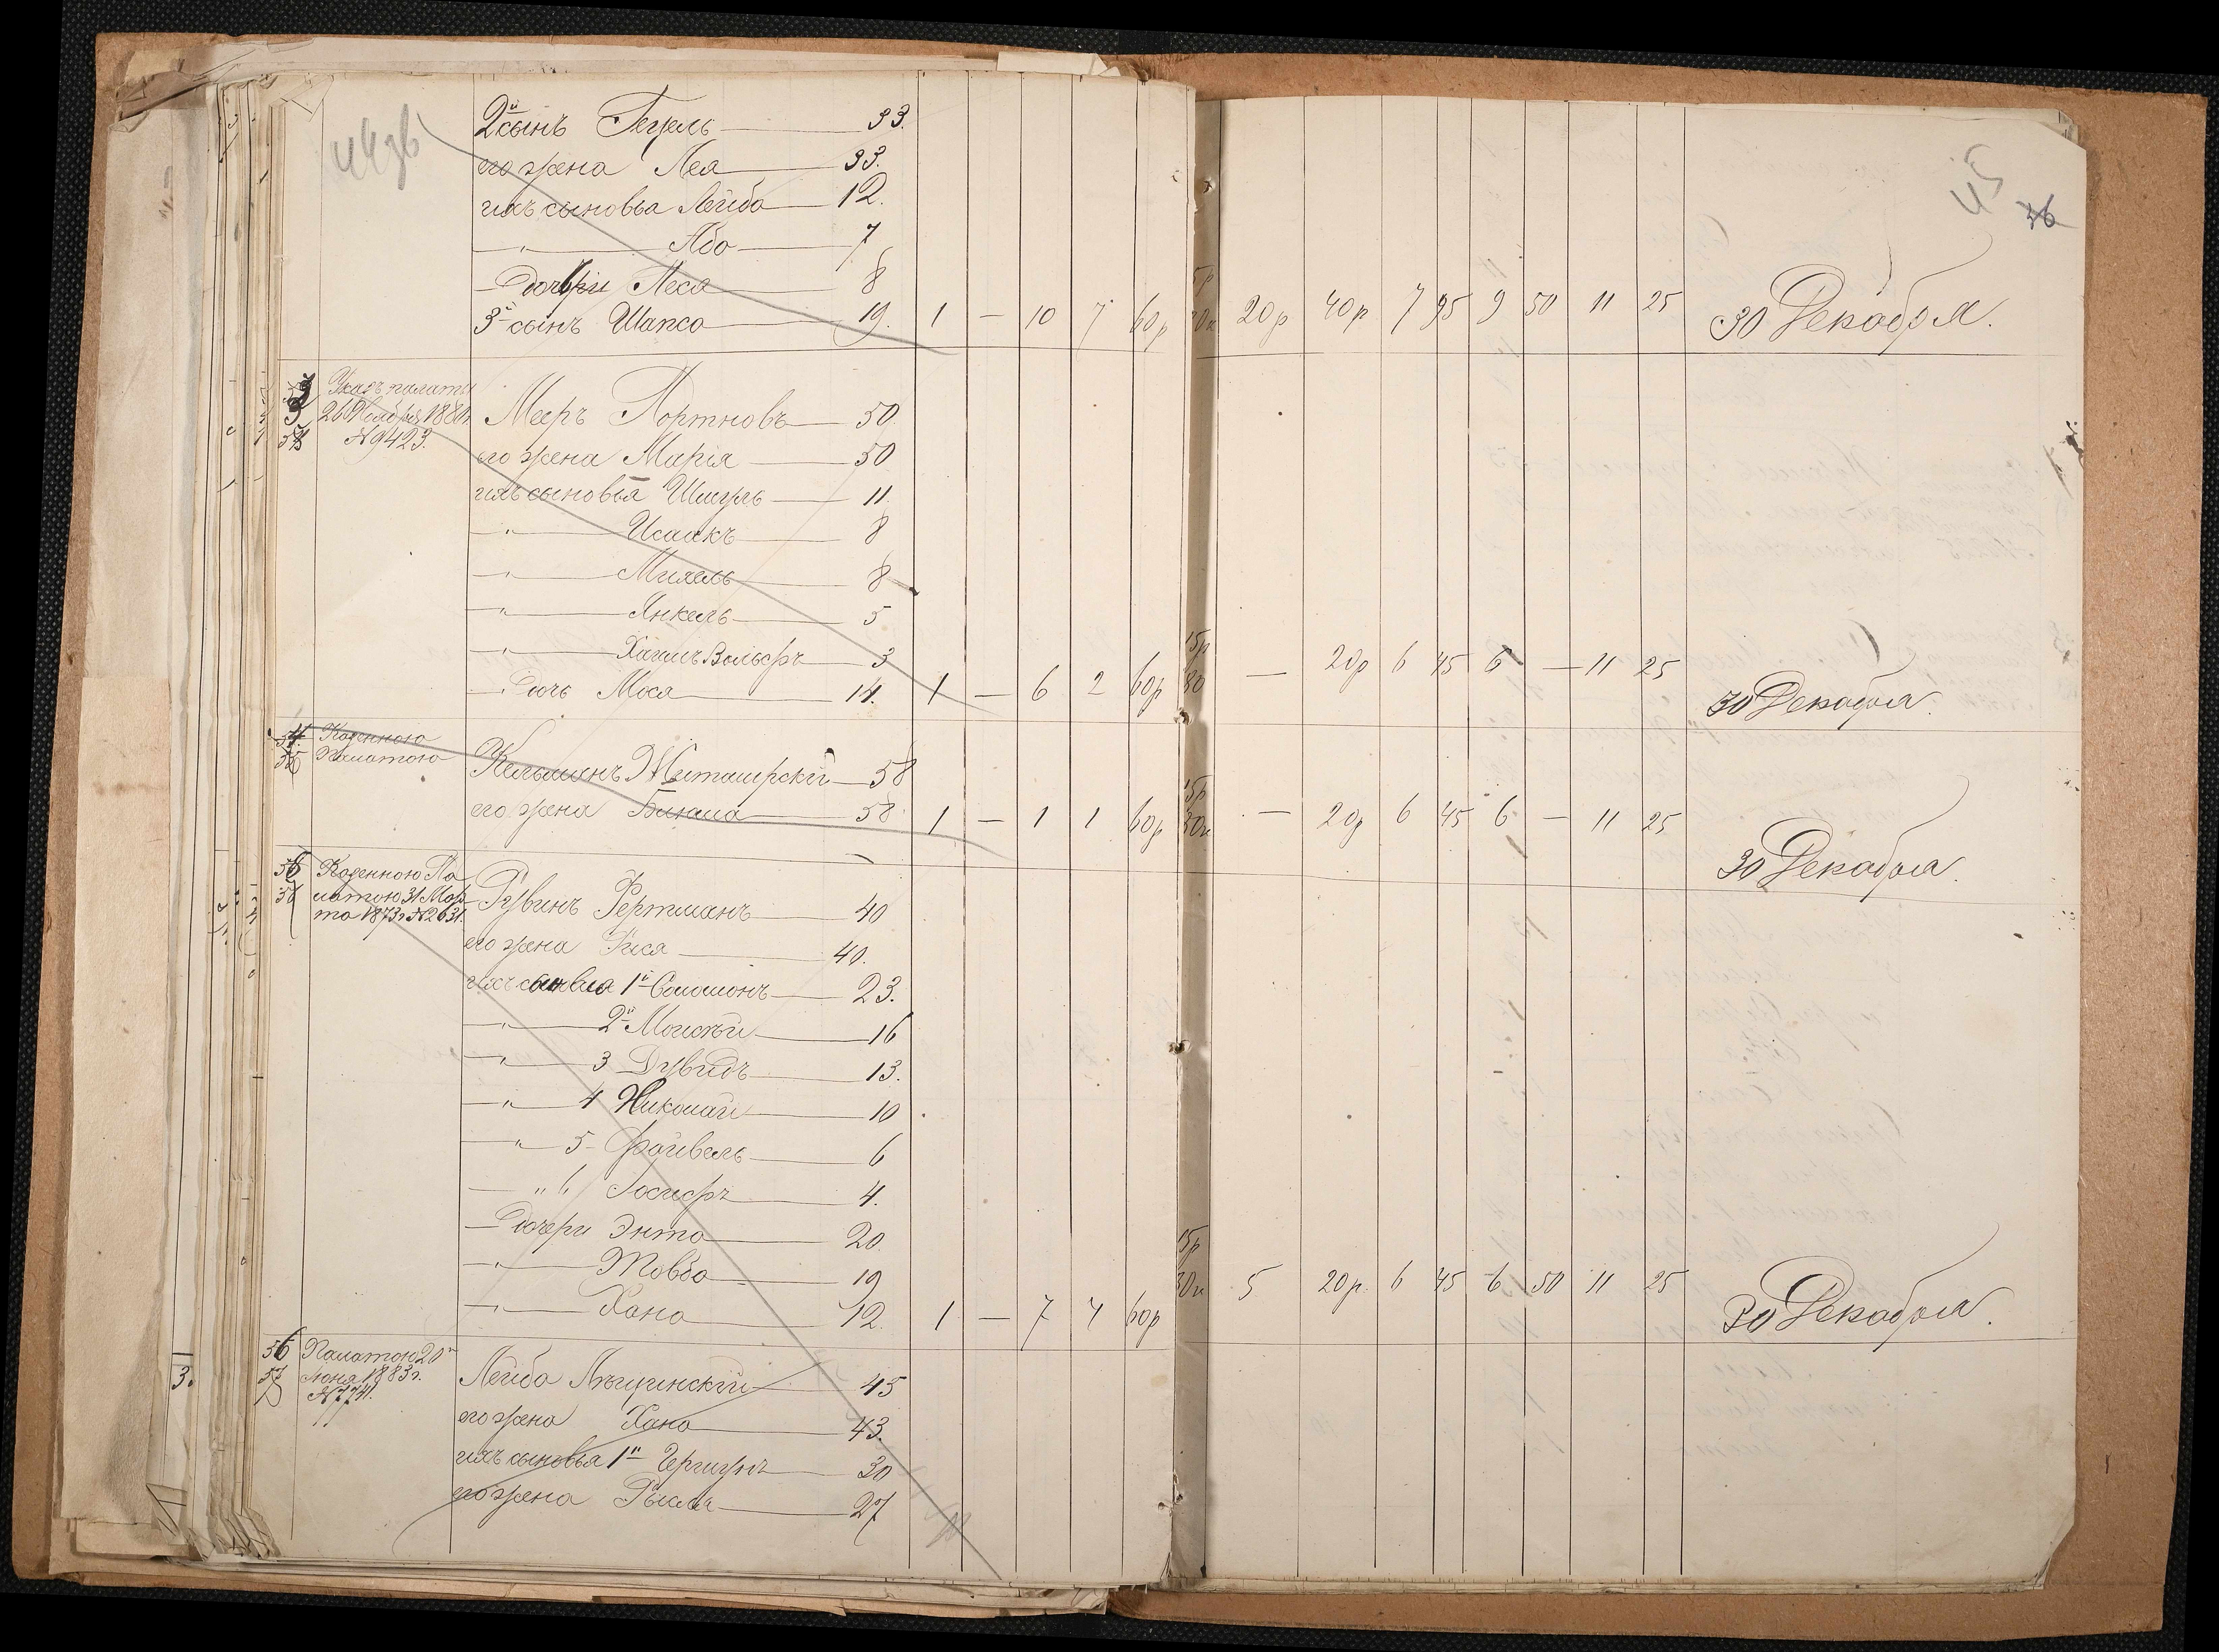 44 об
45
36
2й сынъ Гецель 33.
его жена Лея 33.
ихъ сыновья Лейба 12.
— " — Або 7
— Дочери Песя 8
3й сынъ Шапса 19. 1 — 10 7 60р 20р 40р 7 95 9 50 11 25 30 Декабря.
Указъ палаты
26 Ноября 188
№ 9423.
Мееръ Портновъ 50.
его жена Марія 50
ихъ сыновья Шмуль 11.
— " — Исаакъ 8
— " — Михель 8
— " — Янкель 5
— " — Хаимъ Вольфъ 3
— Дочь Мося 14. 1 — 6 2 60р 15р 30 — 20р 6 45 6 — 11 25 30 Декабря.
Казенною
Палатою
Кельманъ 58
его жена Блюма 58 1 — 1 1 60р 15р 30к — 20р 6 45 6 — 11 25 30 Декабря.
Казенною Па
латою 31 Мар
та 1873г №2631.
Рувинъ Фертманъ 40
его жена Рися 40.
ихъ сыновья 1й Соломонъ 23.
— " — 2й Моисей 16
— " — 3 Дувидъ 13.
— " — 4 Николай 10
— " — 5 Файвель 6
— " 6 Іосифъ 4.
— Дочери Энта 20.
— " — Товба 19
— " — Хана 12. 1 — 7 4 60р 15р 30к 5 20р. 6 45 6 50 11 25 30 Декабря.
56
57
Палатою 20го
Іюня 1883г.
№7741.
Лейба 45
его жена Хана 43.
ихъ сыновья 1й Гершунъ 30
его жена Рысля 27
3.